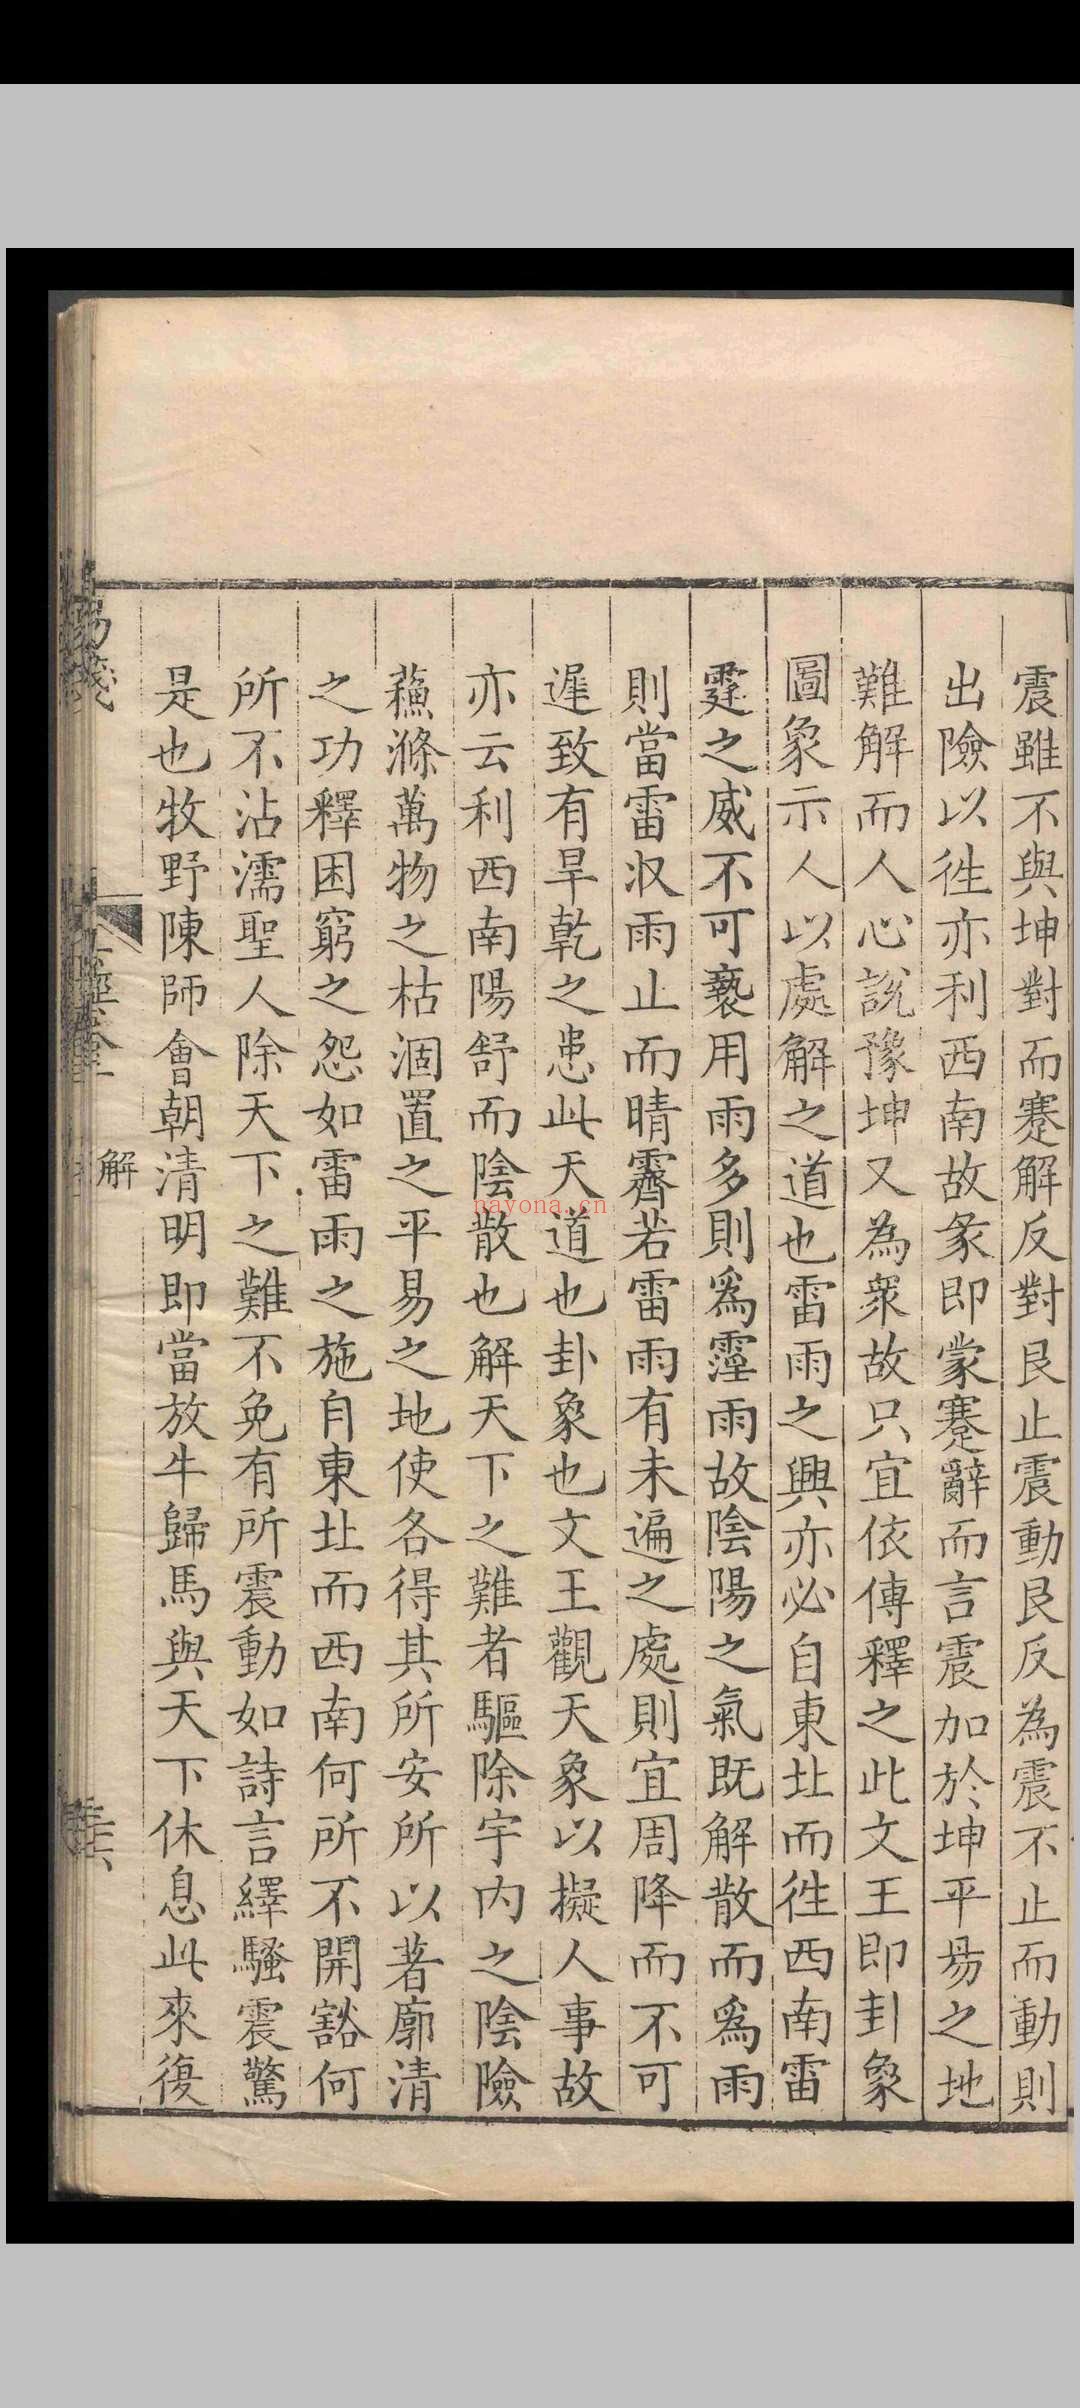 震雖不與坤對而蹇解反對艮止震動艮反為震不止而動則
出險以徃亦利西南故彖即蒙蹇辭而言震加於坤平易之地
難解而人心說豫坤又為衆故只宜依傳釋之此文王即卦象
圖象示人以處解之道也雷雨之興亦必自東北而徃西南雷
霆之威不可褻用雨多則爲霪雨故陰陽之氣既解散而爲雨
則當雷収雨止而晴霽若雷雨有未遍之處則宜周降而不可
遲致有旱乾之患此天道也卦象也文王觀天象以擬人事故
亦云利西南陽舒而陰散也解天下之難者驅除宇内之陰險
蘓滌萬物之枯涸置之平易之地使各得其所安所以著廓清
之功釋困窮之怨如雷雨之施自東北而西南何所不開豁何
所不沾濡聖人除天下之難不免有所震動如詩言繹騷震驚
是也牧野陳師會朝清明即當放牛歸馬與天下休息此來復
解
nayona.cn